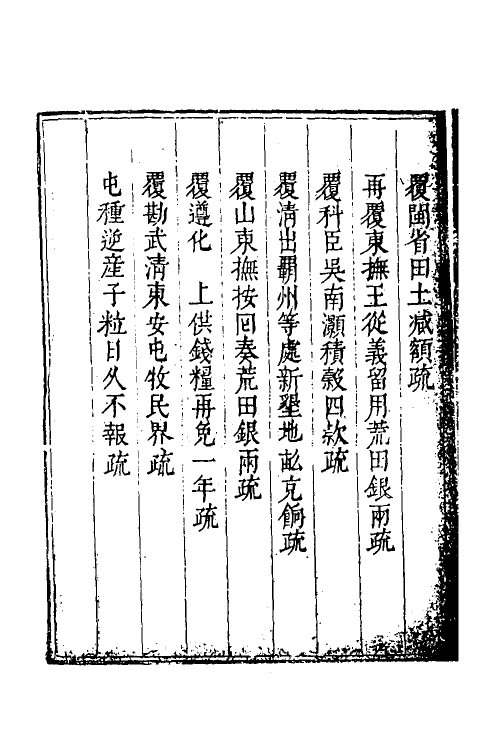 覆閩省田土減額疏
再覆東撫王從義留用荒田銀兩疏
覆科臣吳南灝積穀四款疏
覆清出霸州等處新墾地畝克餉疏
覆山東撫按回奏荒田銀兩疏
覆遵化　上供錢糧再免一年疏
覆勘武清東安屯牧民界疏
屯種逆產子粒日久不報疏